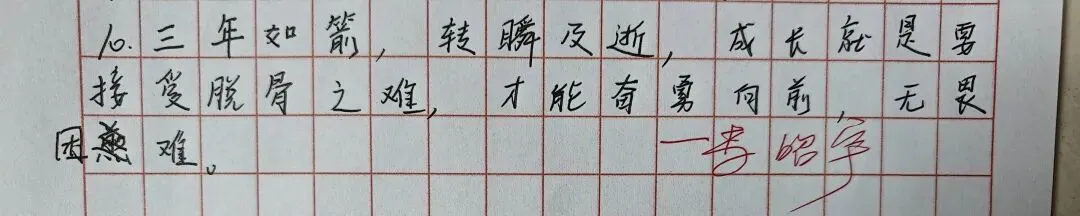 10. 三年如箭，转瞬及逝，成长就是要
接受脱骨之难，才能奋勇向前，无畏
困难。
一李昭宇